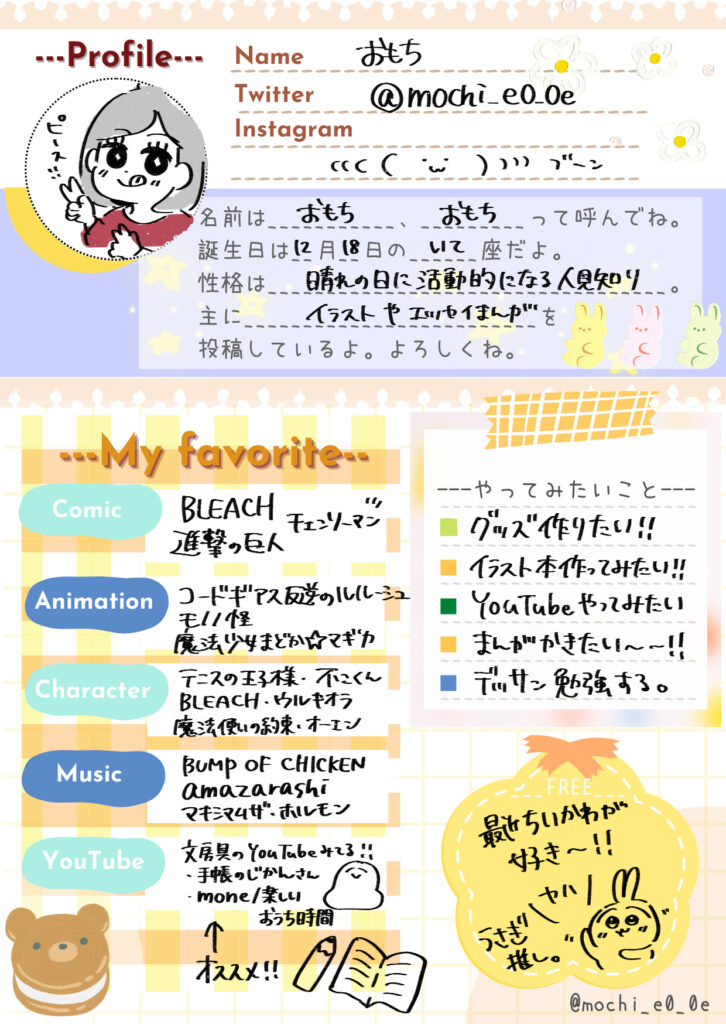 ---Profile---
ピース!!
Name おもち
Twitter @mochi_e0_0e
Instagram
((( ( ˙ω˙ ) ))) ブーン
名前は おもち 、 おもち って呼んでね。
誕生日は12月18日の いて 座だよ。
性格は 晴れの日に活動的になる人見知り 。
主に イラストやエッセイまんが を
投稿しているよ。よろしくね。
---My favorite--
Comic
BLEACH チェンソーマン
進撃の巨人
Animation
コードギアス反逆のルルーシュ
モノノ怪
魔法少女まどか☆マギカ
Character
テニスの王子様・不二くん
BLEACH・ウルキオラ
魔法使いの約束・オーエン
Music
BUMP OF CHICKEN
amazarashi
マキシマムザ・ホルモン
YouTube
文房具のYouTubeみてる!!
・手帳のじかんさん
・mone/楽しい
おうち時間
↑
オススメ!!
---やってみたいこと---
グッズ作りたい!!
イラスト本作ってみたい!!
YouTubeやってみたい
まんがかきたい〜〜!!
デッサン勉強する。
FREE
最近ちいかわが
好き〜!!
ヤハ
うさぎ
推し。
@mochi_e0_0e